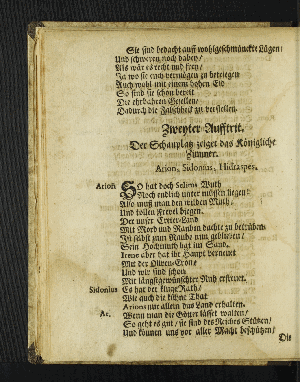 Sie sind bedacht auff wohlgeschmünckte Lügen/
Und schweren noch dabey/
Als wär es recht und frey/
Ja wo sie euch vermögen zu betriegen
Auch wohl mit einem hohen Eid
So sind sie schon bereit
Die ehrbahren Gesellen/
Dadurch die Falschheit zu verstellen.
Zweyter Aufftrit.
Der Schauplatz zeiget das Königliche
Zimmer.
Arion, Sidonius, Hidraspes.
Arion SO hat doch Selims Wuth
Noch endlich unter müssen liegen:
Also muß man den wilden Muth/
Und tollen Frevel biegen.
Der unser Creter-Land
Mit Mord und Rauben dachte zu betrüben.
Ist selbst zum Raube nun geblieben/
Sein Hochmuth ligt im Sand.
Irene aber hat ihr Haupt bernenet
Mit der Oliven-Cron/
Und wir sind schon
Mit längstgewünschter Ruh erfreuet.
Sidonius Es hat der kluge Rath/
Wie auch die kühne That
Arions nur allein das Land erhalten.
Ar. Wenn man die Götter lässet walten/
So geht es gut/ sie sind des Reiches Stützen/
Und können uns vor aller Macht beschützen/
Die